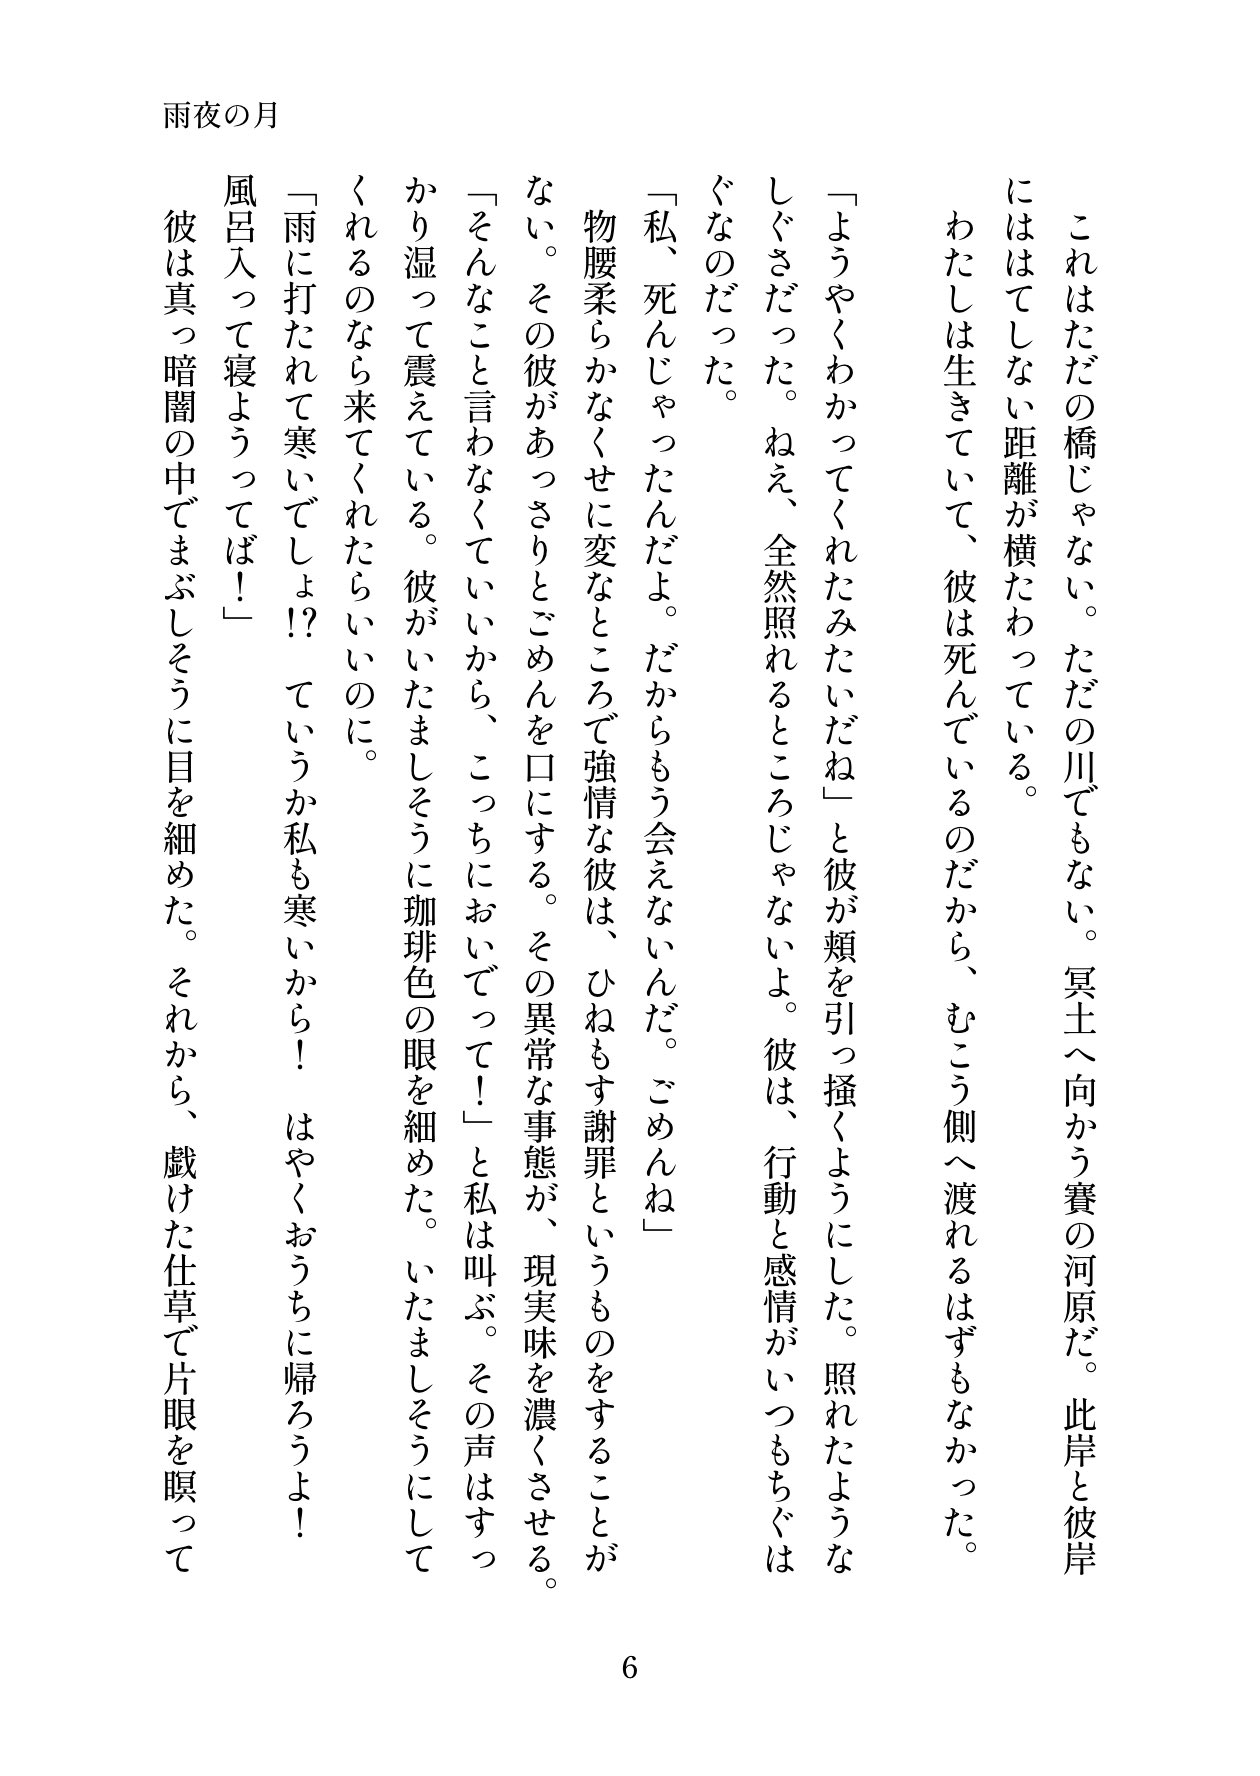 雨夜の月
　これはただの橋じゃない。ただの川でもない。冥土へ向かう賽の河原だ。此岸と彼岸
にははてしない距離が横たわっている。
　わたしは生きていて、彼は死んでいるのだから、むこう側へ渡れるはずもなかった。
「ようやくわかってくれたみたいだね」と彼が頬を引っ掻くようにした。照れたような
しぐさだった。ねえ、全然照れるところじゃないよ。彼は、行動と感情がいつもちぐは
ぐなのだった。
「私、死んじゃったんだよ。だからもう会えないんだ。ごめんね」
　物腰柔らかなくせに変なところで強情な彼は、ひねもす謝罪というものをすることが
ない。その彼があっさりとごめんを口にする。その異常な事態が、現実味を濃くさせる。
「そんなこと言わなくていいから、こっちにおいでって！」と私は叫ぶ。その声はすっ
かり湿って震えている。彼がいたましそうに珈琲色の眼を細めた。いたましそうにして
くれるのなら来てくれたらいいのに。
「雨に打たれて寒いでしょ!?　ていうか私も寒いから！　はやくおうちに帰ろうよ！
風呂入って寝ようってば！」
　彼は真っ暗闇の中でまぶしそうに目を細めた。それから、戯けた仕草で片眼を瞑って
6